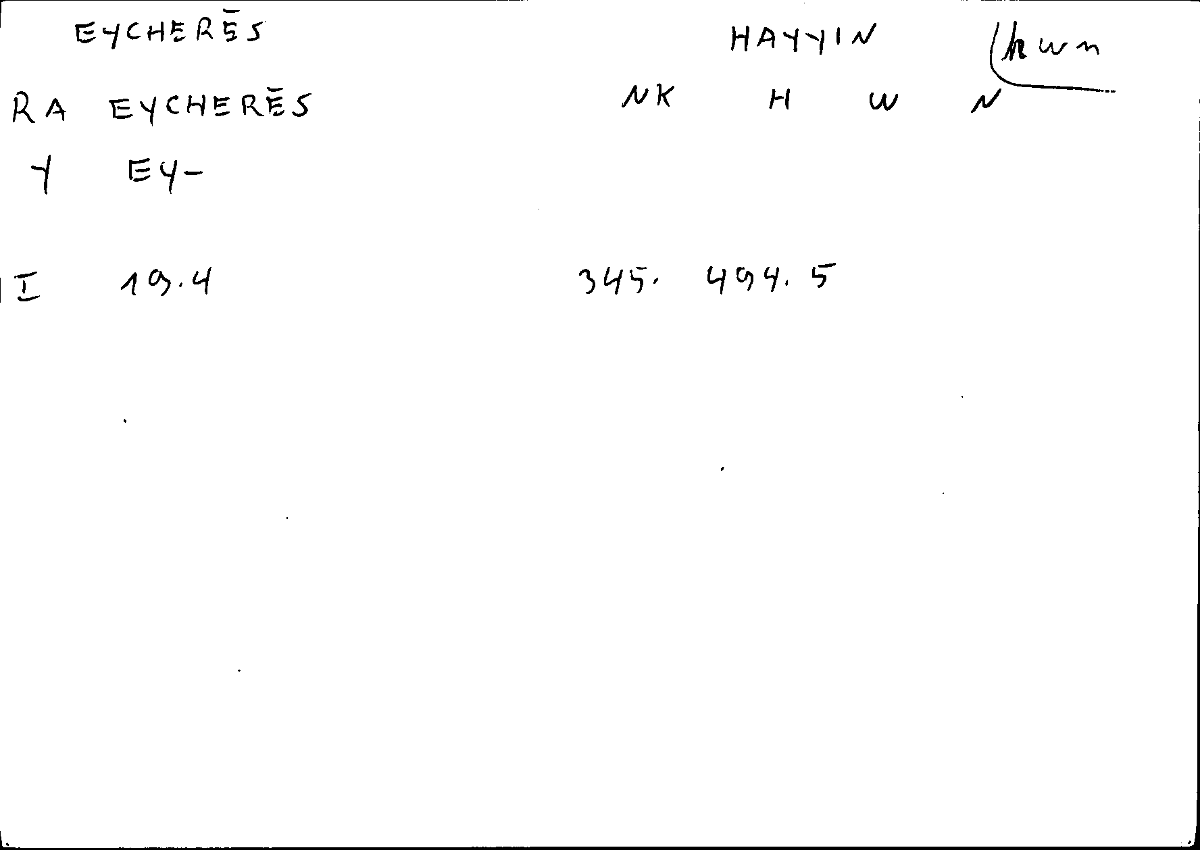 EYCHERĒS HAYYIN hwn
RA EYCHERĒS NK H W N
Y EY-
I 19.4 345. 494.5